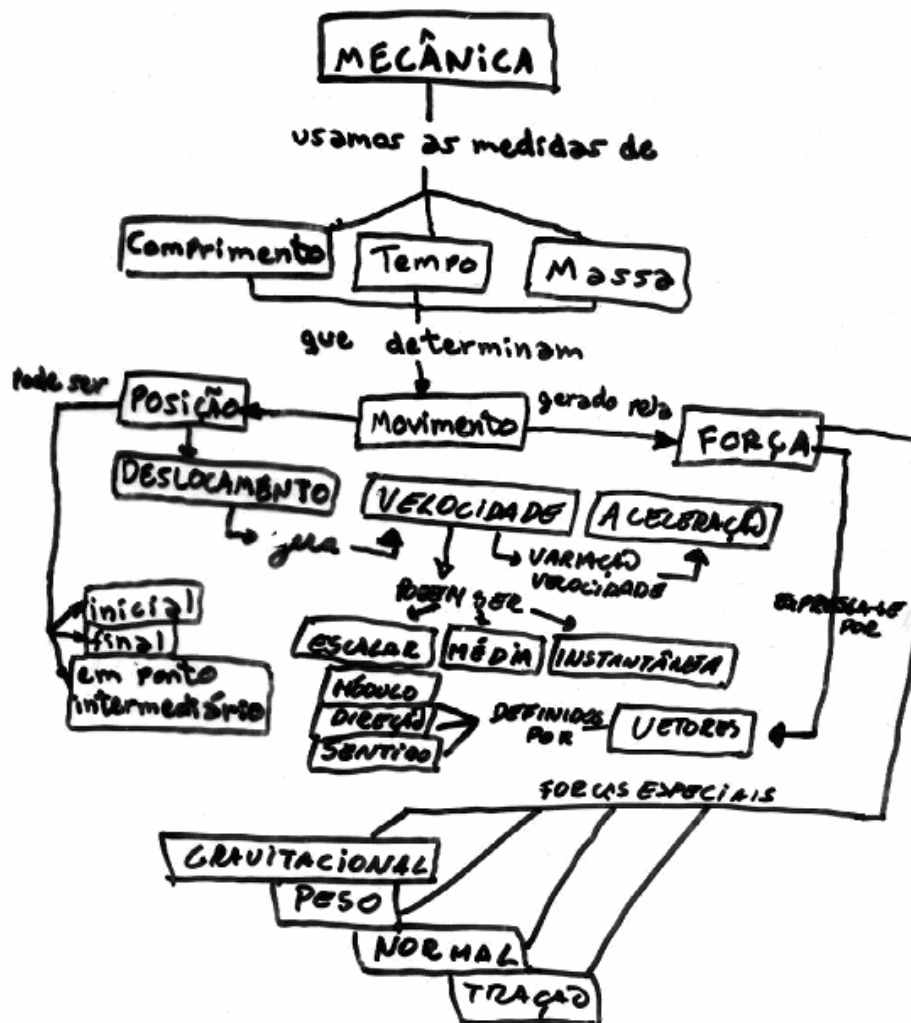 MECÂNICA
usamos as medidas de
Comprimento
Tempo
Massa
que determinam
Pode ser
POSIÇÃO
Movimento
gerado pela
FORÇA
DESLOCAMENTO
VELOCIDADE
ACELERAÇÃO
gera
VARIAÇÃO
VELOCIDADE
PODEM SER
EXPRESSA-SE
POR
inicial
final
em ponto
intermediário
ESCALAR
MÉDIA
INSTANTÂNEA
MÓDULO
DIREÇÃO
SENTIDO
DEFINIDOS
POR
VETORES
FORÇAS ESPECIAIS
GRAVITACIONAL
PESO
NORMAL
TRAÇÃO